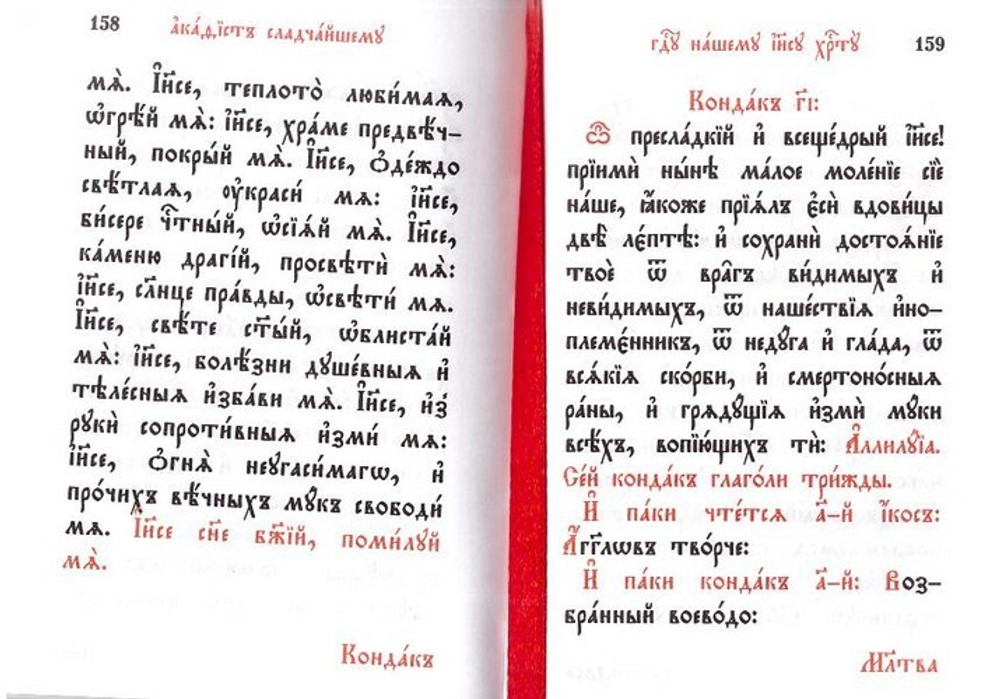 158 а҆ка́ѳїстъ сладча́йшемꙋ
мѧ̀. І҆и҃се, теплото̀ люби́маѧ,
ѡ҆грѣ́й мѧ̀: і҆и҃се, хра́ме предвѣ́ч-
ный, покры́й мѧ̀. І҆и҃се, ѻ҆де́ждо
свѣ́тлаѧ, ᲂу҆краси́ мѧ: і҆и҃се,
би́сере чⷭ҇тны́й, ѡ҆сїѧ́й мѧ̀. І҆и҃се,
ка́меню драгі́й, просвѣтѝ мѧ̀:
і҆и҃се, сл҃нце пра́вды, ѡ҆свѣти́ мѧ.
І҆и҃се, свѣ́те ст҃ы́й, ѡ҆блиста́й
мѧ̀: і҆и҃се, болѣ́зни дꙋше́вныѧ и҆
тѣле́сныѧ и҆зба́ви мѧ̀. І҆и҃се, и҆з̾
рꙋкѝ сопроти́вныѧ и҆зми́ мѧ:
і҆и҃се, ѻ҆гнѧ̀ неꙋгаси́магѡ, и҆
про́чихъ вѣ́чныхъ мꙋ́къ свободи́
мѧ. І҆и҃се сн҃е бж҃їй, поми́лꙋй
мѧ̀.
Конда́къ
гдⷭ҇ꙋ на́шемꙋ і҆и҃сꙋ хрⷭ҇тꙋ̀ 159
Конда́къ г҃і:
Ѽ пресла́дкїй и҆ всеще́дрый і҆и҃се!
прїимѝ ны́нѣ ма́лое моле́нїе сїѐ
на́ше, ꙗ҆́коже прїѧ́лъ є҆сѝ вдови́цы
двѣ̀ ле́птѣ: и҆ сохранѝ достоѧ́нїе
твоѐ ѿ вра̑гъ ви́димыхъ и҆
неви́димыхъ, ѿ наше́ствїѧ и҆но-
племе́нникъ, ѿ недꙋ́га и҆ гла́да, ѿ
всѧ́кїѧ ско́рби, и҆ смертоно́сныѧ
ра́ны, и҆ грѧдꙋ́щїѧ и҆змѝ мꙋ́ки
всѣ́хъ, вопїю́щихъ тѝ: А҆ллилꙋ́їа.
Се́й конда́къ глаго́ли три́жды.
И҆ па́ки чте́тсѧ а҃-й і҆́косъ:
А҆́гг҃лѡвъ тво́рче:
И҆ па́ки конда́къ а҃-й: Воз-
бра́нный воево́до:
Мл҃тва